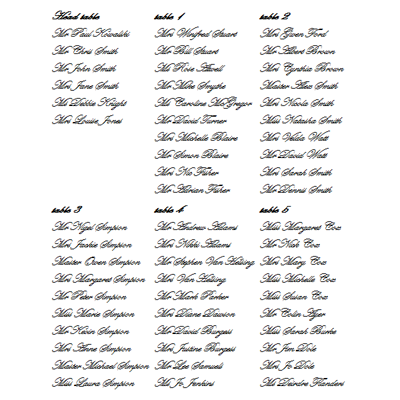 Head table
Mr Paul Kowalski
Mr Chris Smith
Mr John Smith
Mrs Jane Smith
Ms Debbie Knight
Mrs Louise Jones
table 1
Mrs Winifred Stuart
Mr Bill Stuart
Ms Rose Atwell
Mr Mike Smythe
Ms Caroline McGregor
Mr David Turner
Mrs Michelle Blaire
Mr Simon Blaire
Mrs Nia Fisher
Mr Adrian Fisher
table 2
Mrs Gwen Ford
Mr Albert Brown
Mrs Cynthia Brown
Master Alex Smith
Mrs Nicola Smith
Miss Natasha Smith
Mrs Velda Watt
Mr David Watt
Mrs Sarah Smith
Mr Dennis Smith
table 3
Mr Nigel Simpson
Mrs Jackie Simpson
Master Owen Simpson
Mrs Margaret Simpson
Mr Peter Simpson
Miss Marie Simpson
Mr Kevin Simpson
Mrs Anne Simpson
Master Michael Simpson
Miss Laura Simpson
table 4
Mr Andrew Adams
Mrs Nikki Adams
Mr Stephen Van Helsing
Mrs Van Helsing
Mr Mark Parker
Mrs Diane Dawson
Mr David Burgess
Mrs Justine Burgess
Mr Lee Samuels
Ms Jo Jenkins
table 5
Miss Margaret Cox
Mr Nick Cox
Mrs Mary Cox
Miss Michelle Cox
Miss Susan Cox
Mr Colin Ager
Miss Sarah Burke
Mr Jim Dole
Mrs Jo Dole
Ms Deirdre Flanders